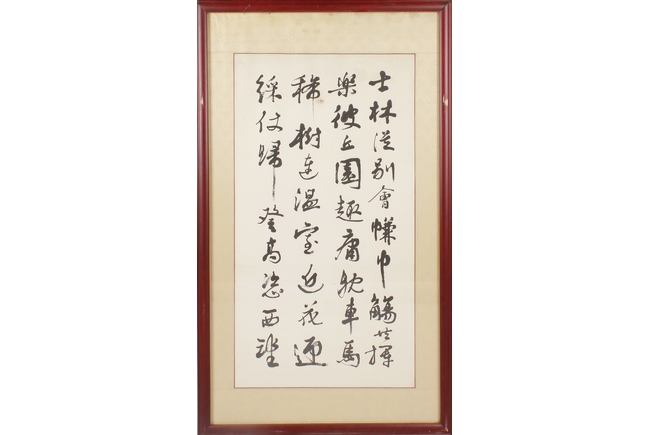 士林從別會幰巾觴共揮
樂彼丘園趣庸耽車馬
稀樹連温室近花迎
綵仗歸登高恣西望